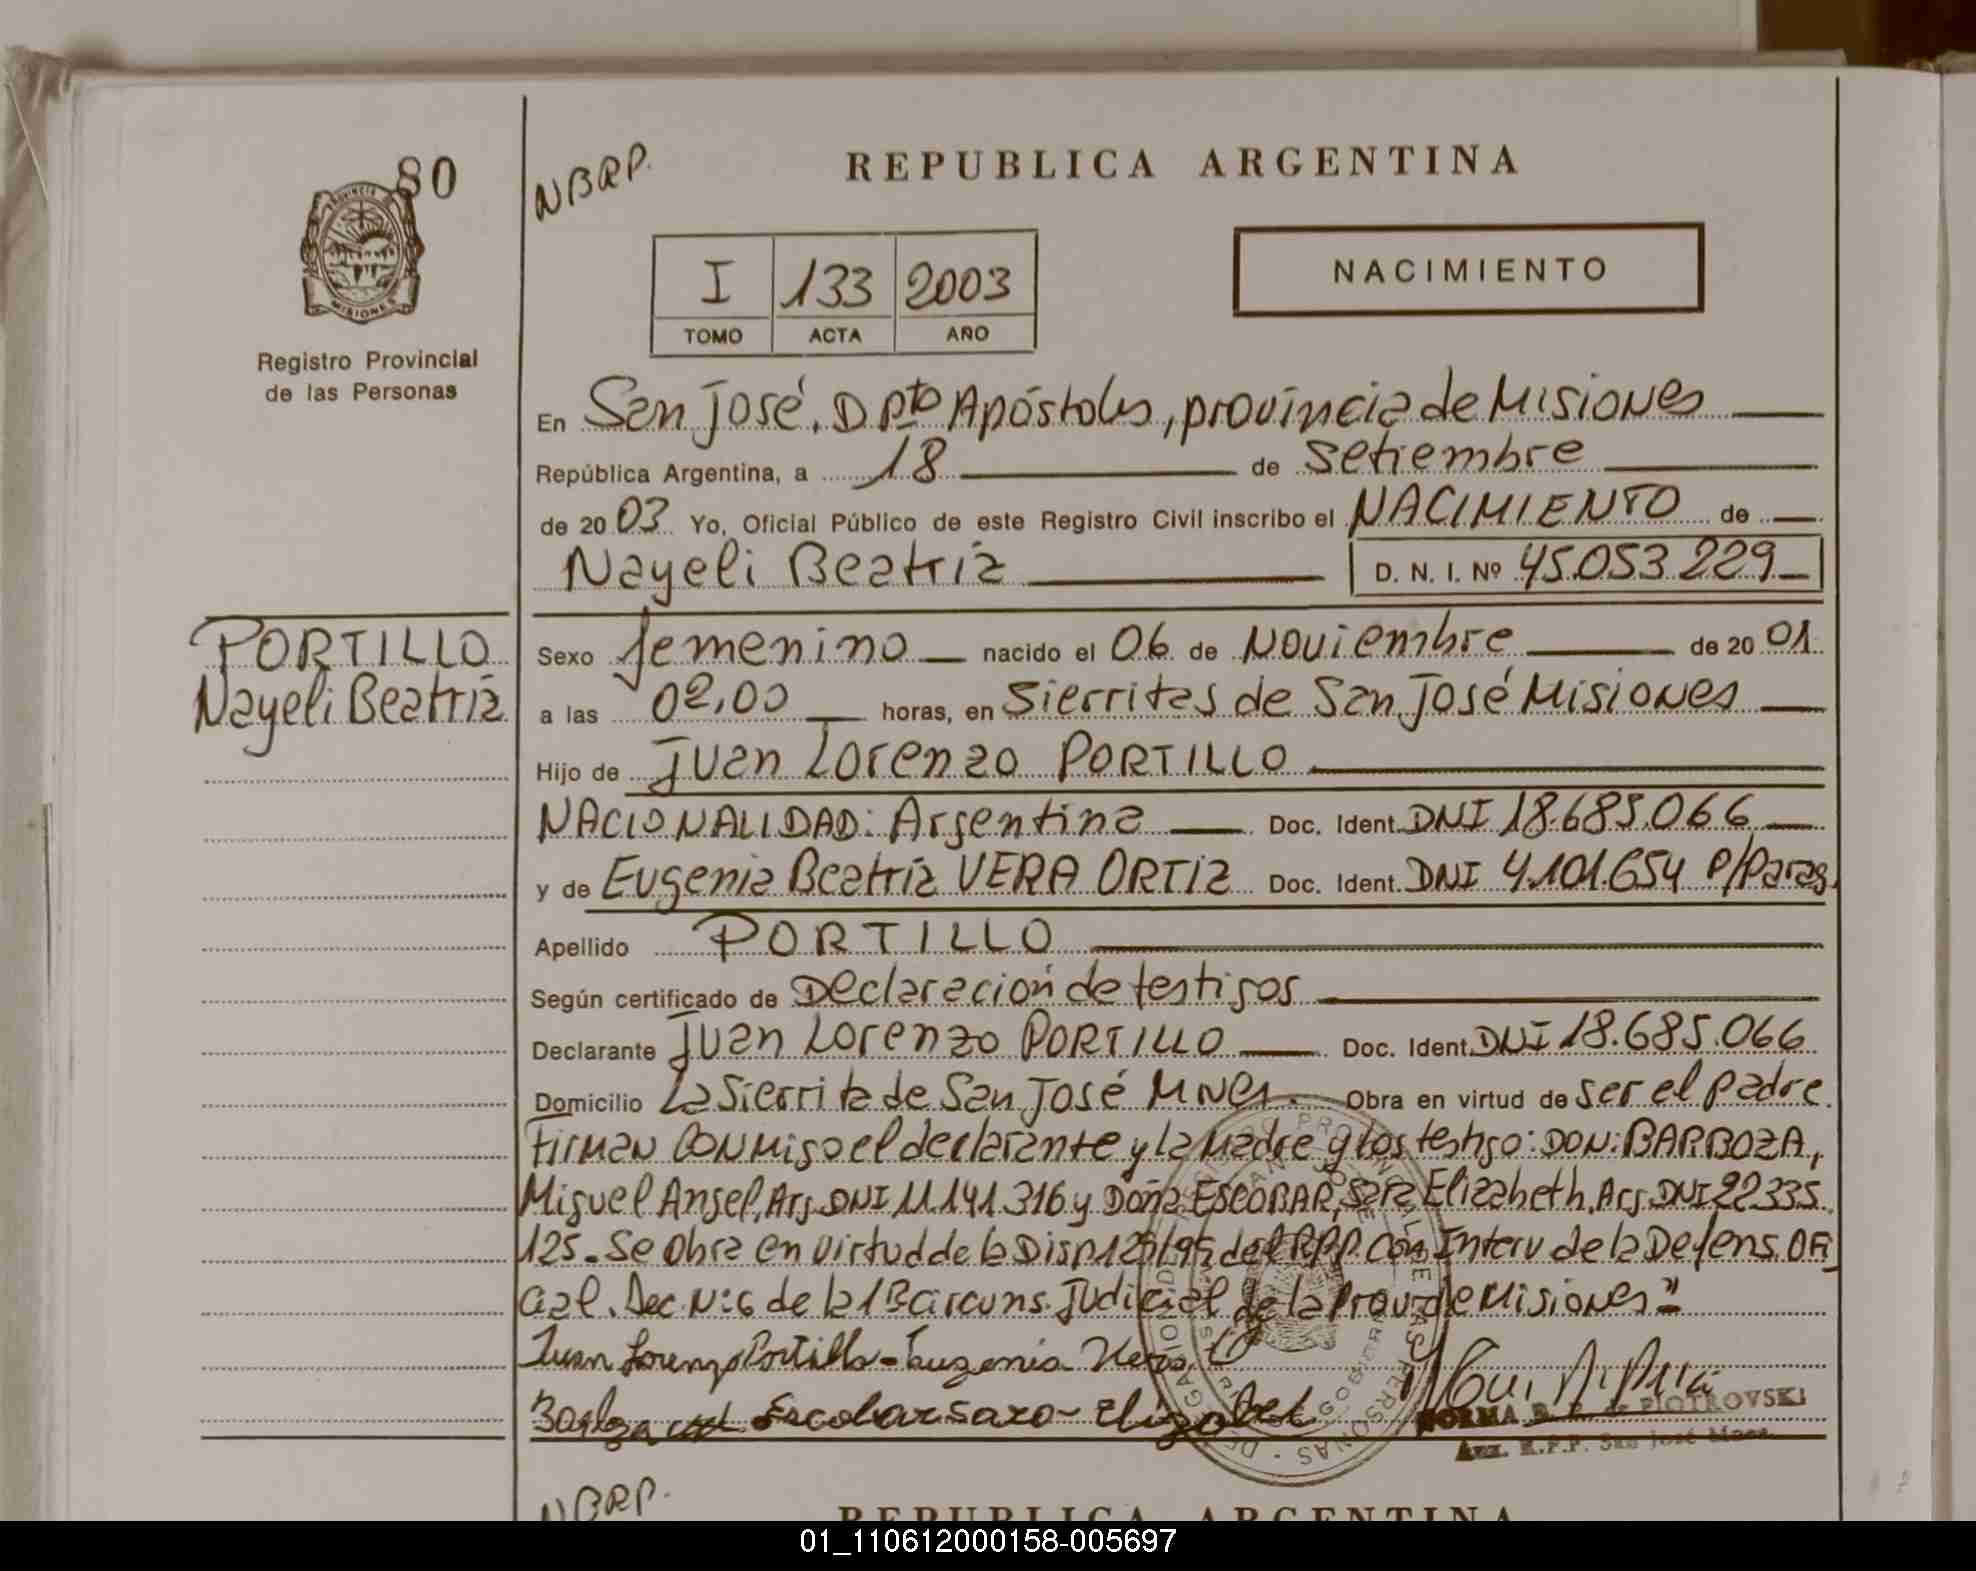 80
NBRP.
REPUBLICA ARGENTINA
I 133 2003
TOMO ACTA AÑO
NACIMIENTO
MISIONES
Registro Provincial
de las Personas
En San José. Dpto Apóstoles, provincia de Misiones
República Argentina, a 18 de Setiembre
de 2003 Yo, Oficial Público de este Registro Civil inscribo el NACIMIENTO de
Nayeli Beatriz D. N. I. Nº 45.053.229
PORTILLO
Nayeli Beatriz
Sexo femenino nacido el 06 de Noviembre de 2001
a las 02,00 horas, en Sierritas de San José Misiones
Hijo de Juan Lorenzo PORTILLO
NACIONALIDAD: Argentina Doc. Ident. DNI 18.685.066
y de Eugenia Beatriz VERA ORTIZ Doc. Ident. DNI 4.101.654 P/Parag.
Apellido PORTILLO
Según certificado de Declaración de testigos
Declarante Juan Lorenzo PORTILLO Doc. Ident. DNI 18.685.066
Domicilio La Sierrita de San José Mnes. Obra en virtud de ser el padre.
Firman conmigo el declarante y la madre y los testigo: DON: BARBOZA,
Miguel Angel, Arg. DNI 11.141.316 y Doña ESCOBAR, Sara Elizabeth, Arg. DNI 22335.
125.- Se obra en virtud de la Disp del RPP. Con Interv de la Defens. Ofi
cial. Dec. Nº 6 de la 1ª circuns. Judicial de la Prov. de Misiones."
Juan Lorenzo Portillo - Eugenia Vera
Escobar Sara Elizabet
NORMA B. P. de PIOTROVSKI
Aux. R.P.P. San José Mnes.
NBRP.
REPUBLICA ARGENTINA
01_110612000158-005697